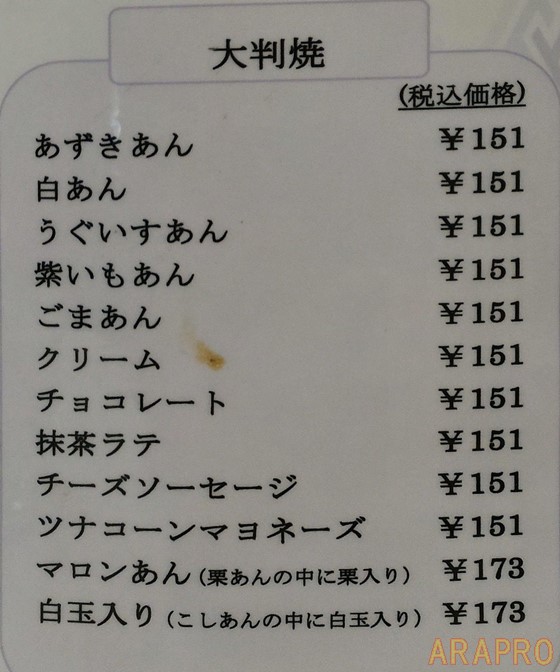 大判焼
(税込価格)
あずきあん ¥151
白あん ¥151
うぐいすあん ¥151
紫いもあん ¥151
ごまあん ¥151
クリーム ¥151
チョコレート ¥151
抹茶ラテ ¥151
チーズソーセージ ¥151
ツナコーンマヨネーズ ¥151
マロンあん(栗あんの中に栗入り) ¥173
白玉入り(こしあんの中に白玉入り) ¥173
ARAPRO